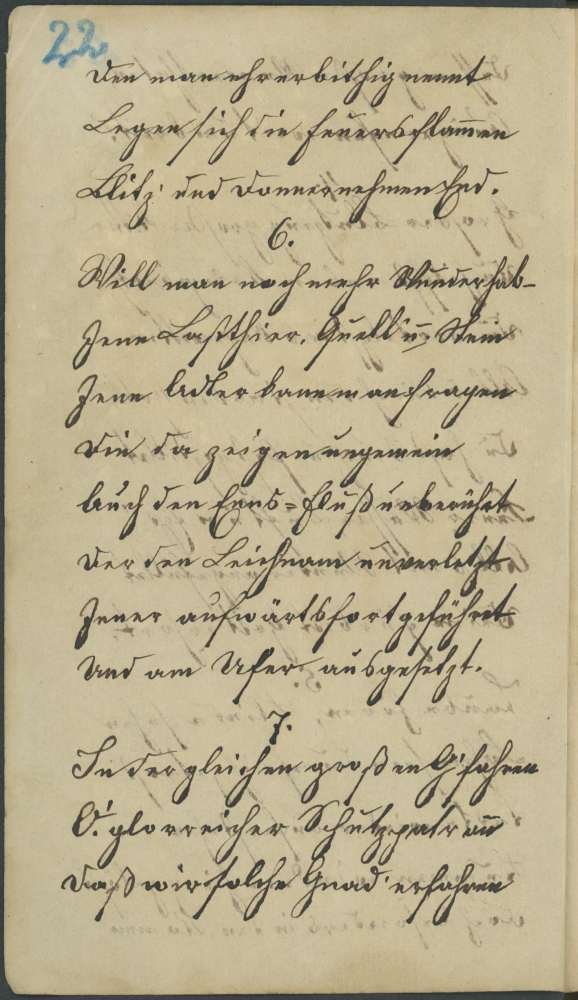 22
Den man ehrerbithig nennt
Legen sich die Feuersflam̄en
Blitz und Donner nehmen End.
6.
Will man noch mehr Wunder hab-
Jene Lastthier, Quell u. Stein
Jene Adler kann man fragen
Die da zeigen ungemein
Auch den Enns=Fluß unberührt
Der den Leichnam unverletzt
Jener aufwärts fortgeführet
Und am Ufer ausgesetzt.
7.
In dergleichen großen G'fahren
O! glorreicher Schutzpatron
Daß wir solche Gnad' erfahren